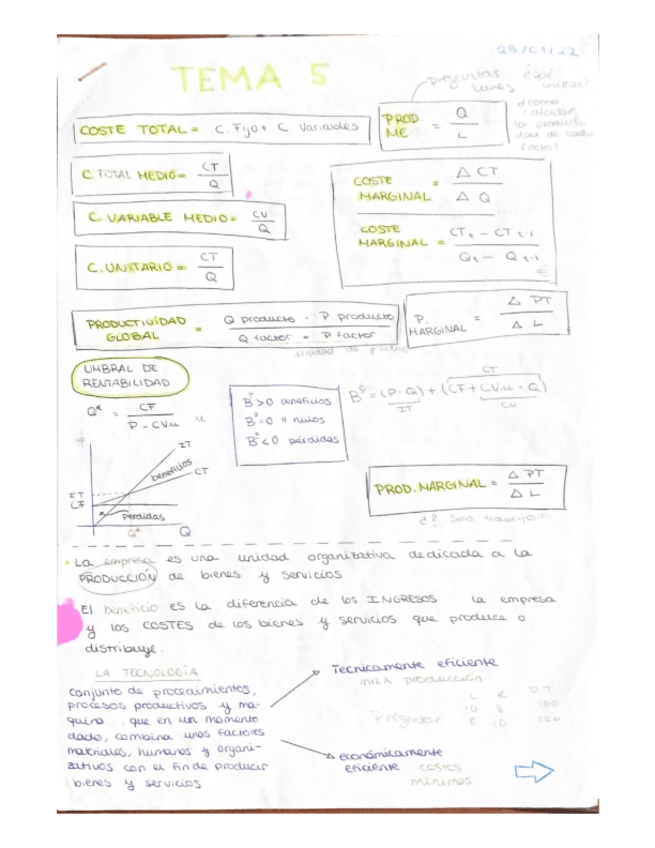 25/01/22
TEMA 5
preguntar ¿qué
lunes
COSTE TOTAL = C. Fijo + C Variables
PROD. ME = Q / L
calcular
C. TOTAL MEDIO = CT / Q
C. VARIABLE MEDIO = CV / Q
C. UNITARIO = CT / Q
COSTE MARGINAL = Δ CT / Δ Q
COSTE MARGINAL = CT t - CT t-1 / Q t - Q t-1
€
PRODUCTIVIDAD GLOBAL = Q producto · P producto / Q factor · P factor
P. MARGINAL = Δ PT / Δ L
UMBRAL DE
RENTABILIDAD
Q* = CF / P - CVu u
Bº > 0 beneficios
Bº = 0 " nulos
Bº < 0 pérdidas
CT
Bº = (P · Q) + (CF + CVu · Q)
IT CV
IT
beneficios CT
IT
CF
Pérdidas
Q* Q
PROD. MARGINAL = Δ PT / Δ L
¿? Solo
La empresa es una unidad organizativa dedicada a la
PRODUCCIÓN de bienes y servicios
El beneficio es la diferencia de los INGRESOS la empresa
y los COSTES de los bienes y servicios que produce o
distribuye.
LA TECNOLOGÍA
conjunto de procedimientos,
procesos productivos y ma-
quina que en un momento
dado, combina unos factores
materiales, humanos y organi-
zativos con el fin de producir
bienes y servicios
Tecnicamente eficiente
max producción
L K PT
10 8 100
Preguntar 8 10 100
económicamente
eficiente costes
mínimos